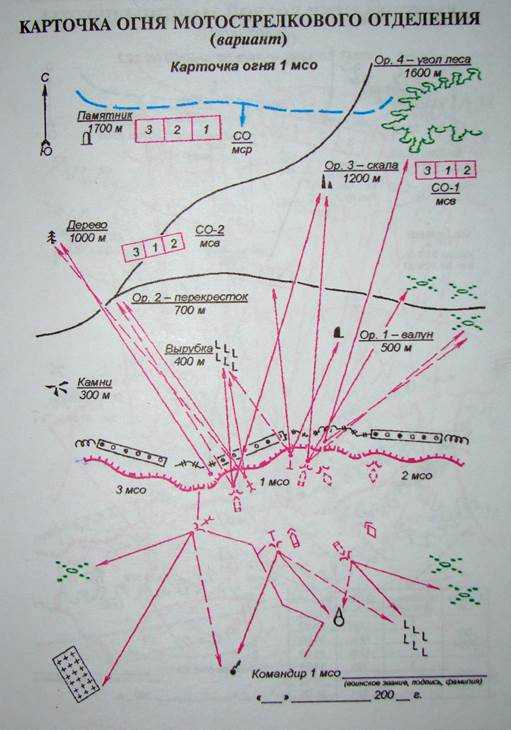 КАРТОЧКА ОГНЯ МОТОСТРЕЛКОВОГО ОТДЕЛЕНИЯ
(вариант)
Карточка огня 1 мсо
Ор. 4 – угол леса
1600 м
С
Ю
Памятник
1700 м
3 2 1
СО
мср
Ор. 3 – скала
1200 м
3 1 2
СО-1
мсв
Дерево
1000 м
3 1 2
СО-2
мсв
Ор. 2 – перекресток
700 м
Ор. 1 – валун
500 м
Вырубка
400 м
Камни
300 м
3 мсо
1 мсо
2 мсо
Командир 1 мсо
(воинское звание, подпись, фамилия)
«___» ____________ 200 __ г.